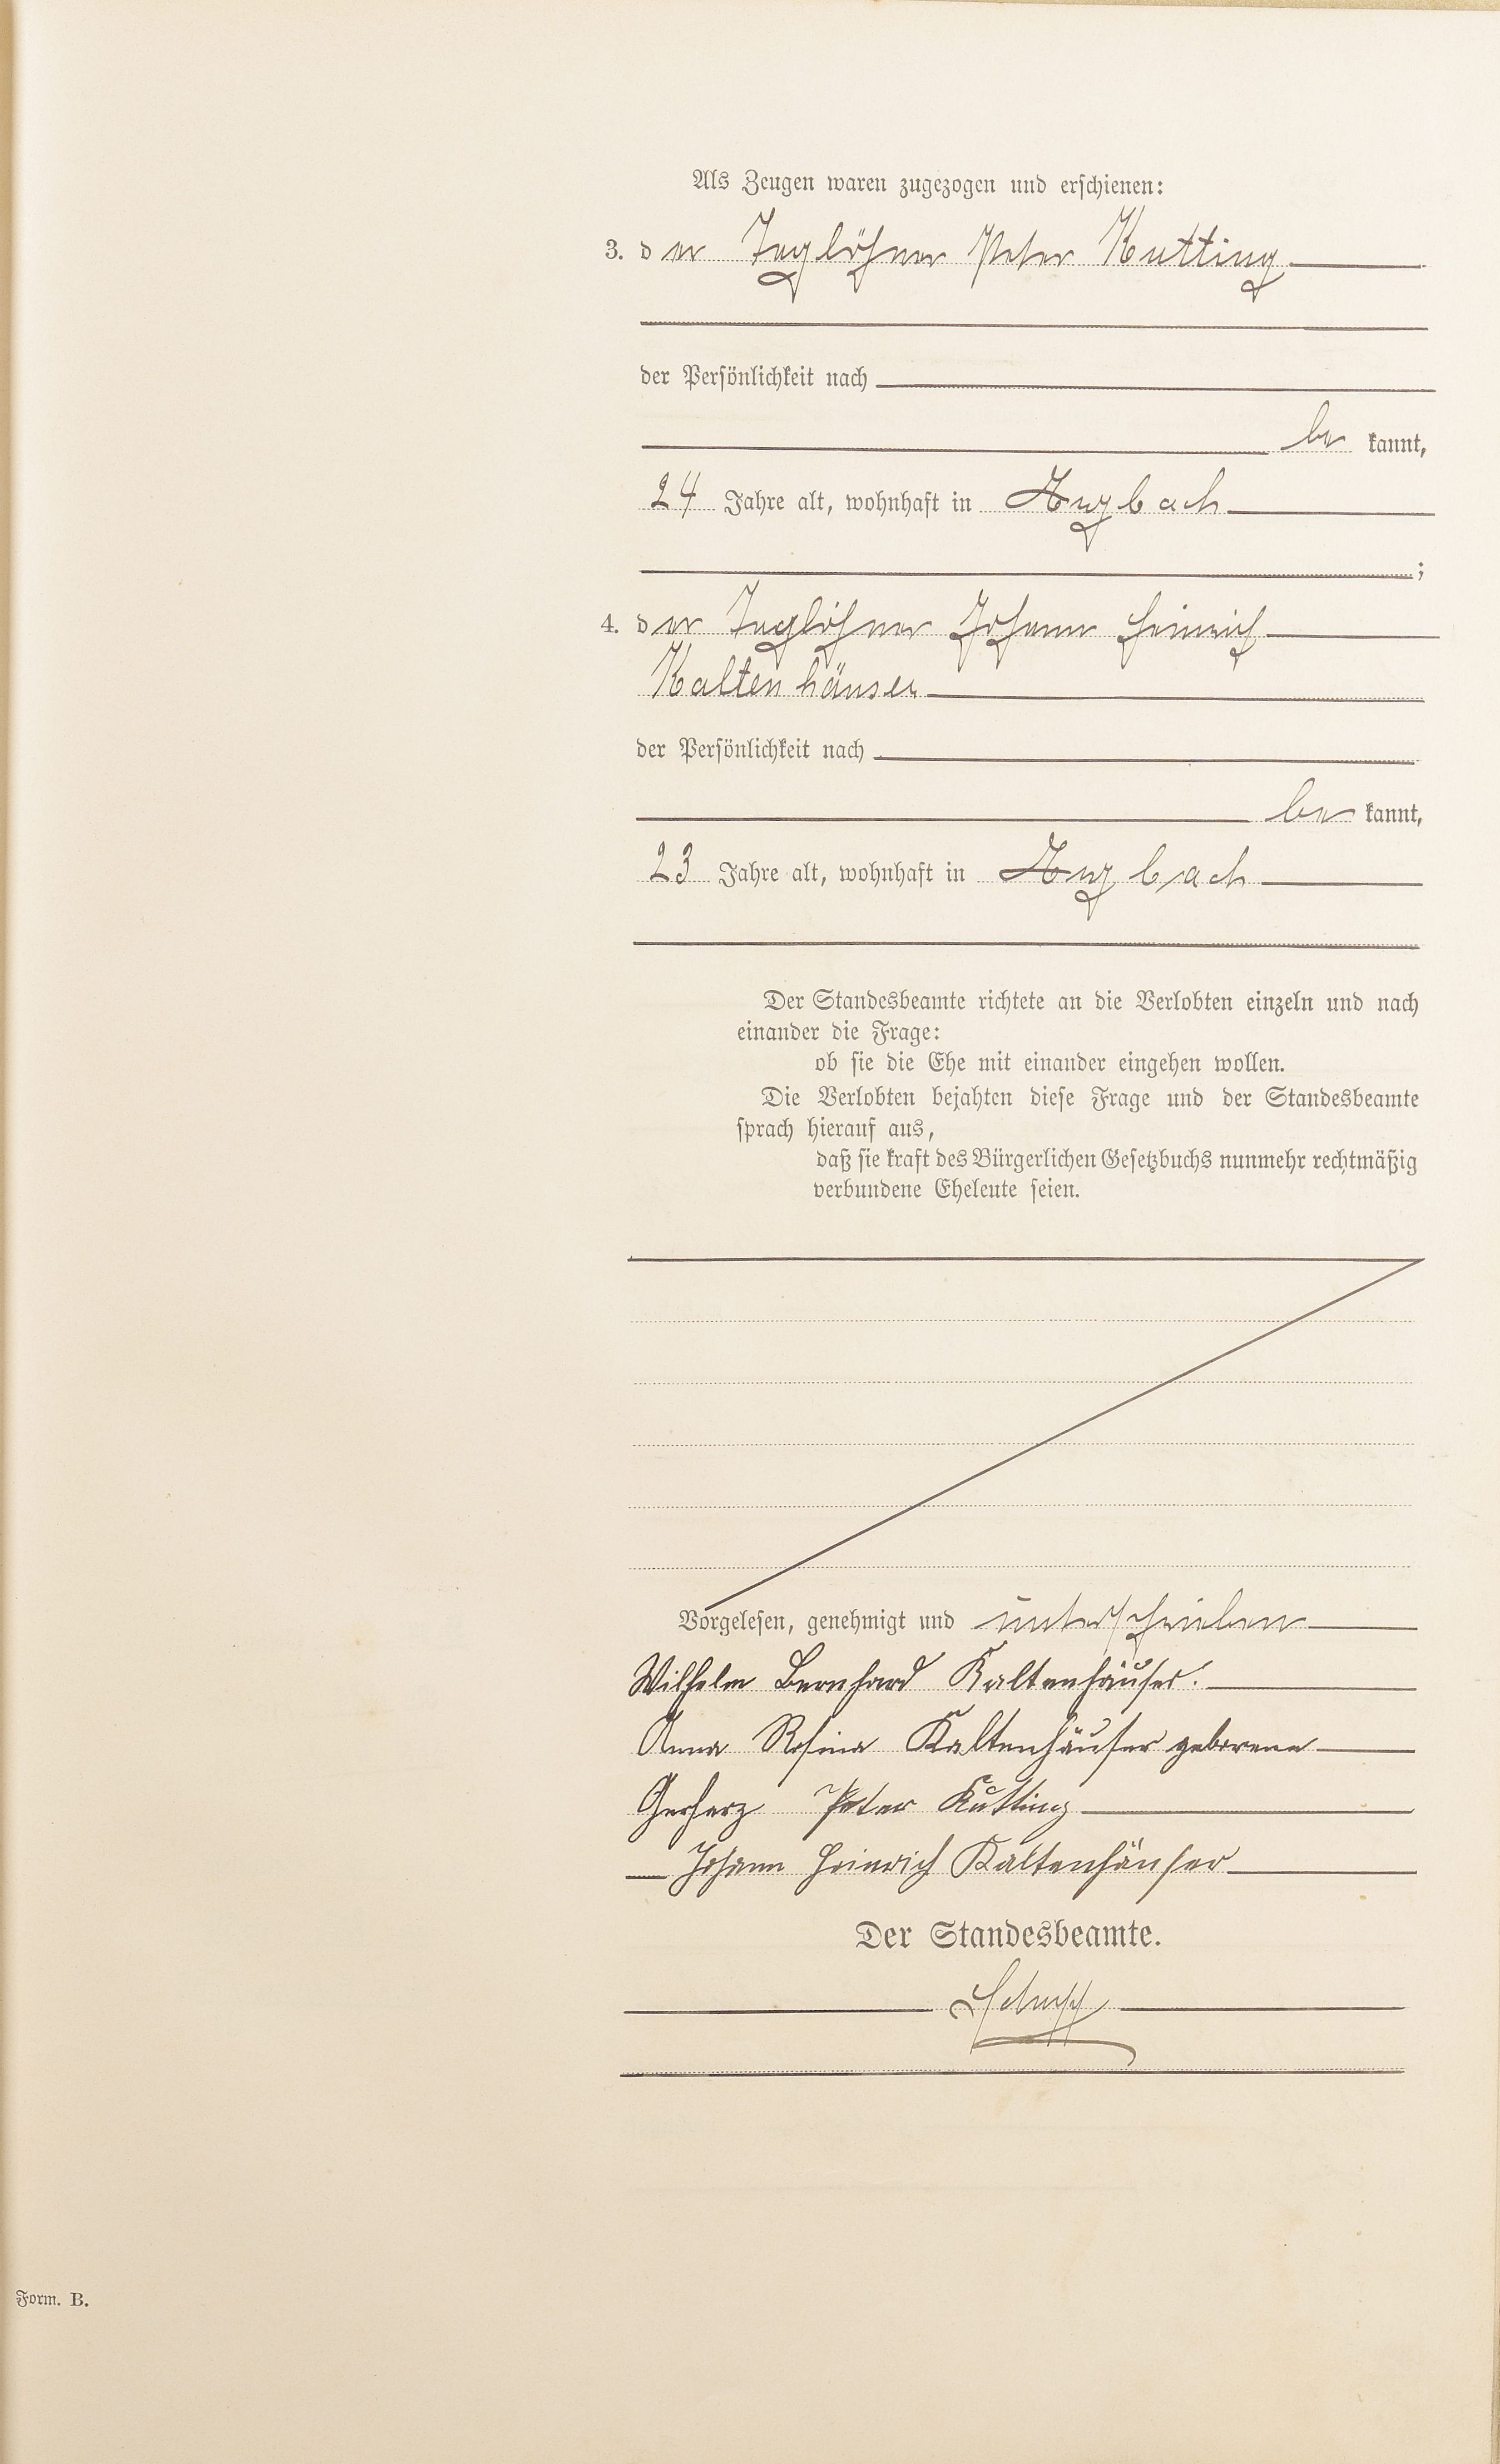 Als Zeugen waren zugezogen und erschienen:
3. der Taglöhner Peter Kutting
der Persönlichkeit nach
be kannt,
24 Jahre alt, wohnhaft in Arzbach
;
4. der Taglöhner Johann Heinrich
Kaltenhäuser
der Persönlichkeit nach
be kannt,
23 Jahre alt, wohnhaft in Arzbach
Der Standesbeamte richtete an die Verlobten einzeln und nach
einander die Frage:
ob sie die Ehe mit einander eingehen wollen.
Die Verlobten bejahten diese Frage und der Standesbeamte
sprach hierauf aus,
daß sie kraft des Bürgerlichen Gesetzbuchs nunmehr rechtmäßig
verbundene Eheleute seien.
Vorgelesen, genehmigt und unterschrieben
Wilhelm Bernhard Kaltenhäuser.
Anna Rosina Kaltenhäuser geborene
Gerharz Peter Kutting
Johann Heinrich Kaltenhäuser
Der Standesbeamte.
Form. B.